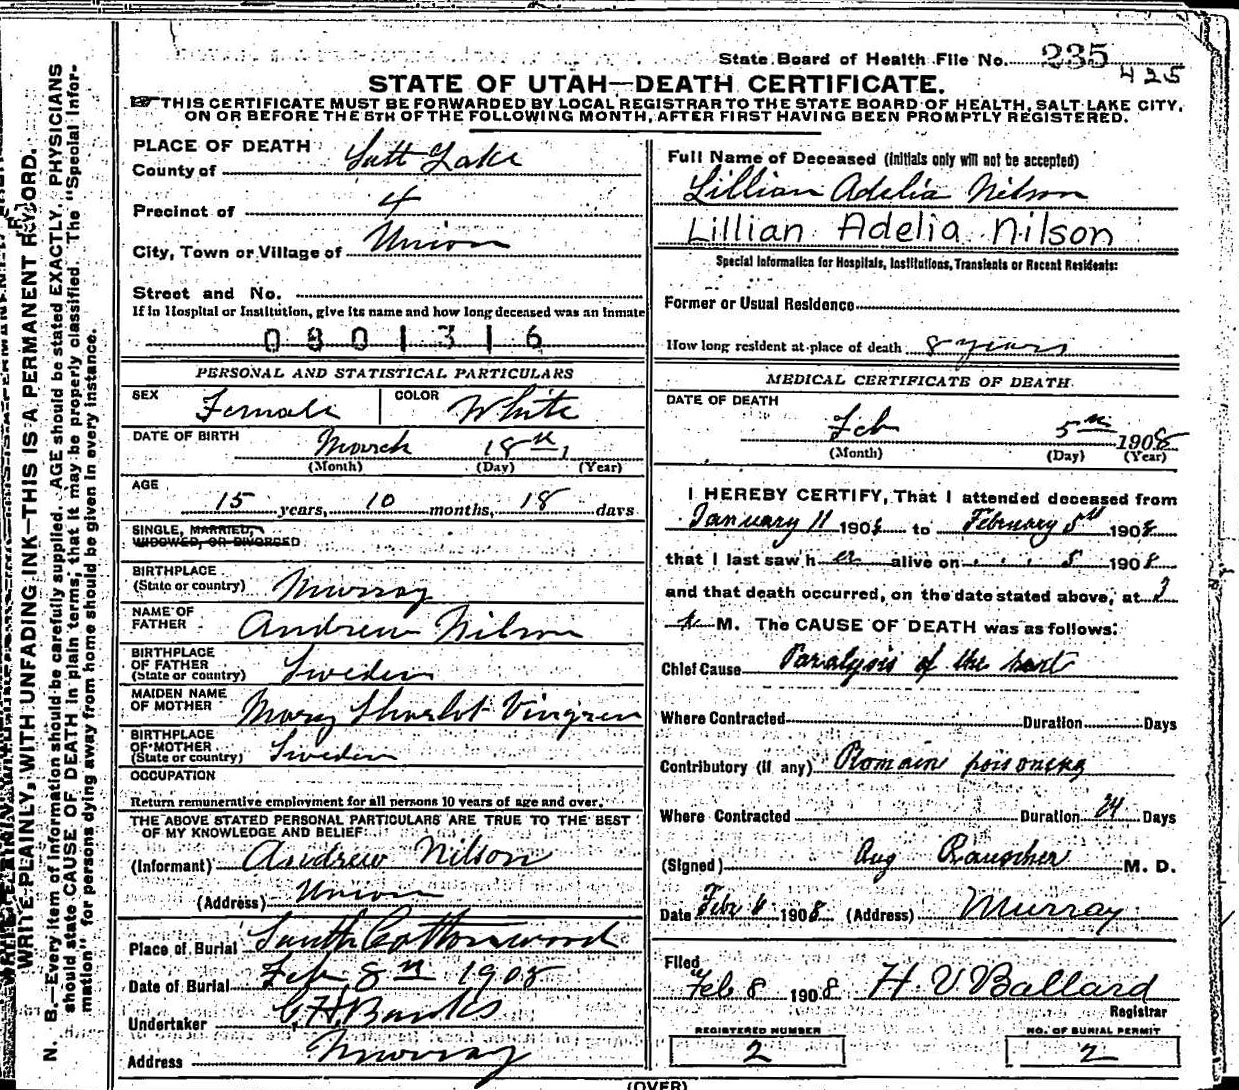 State Board of Health File No. 235
425
STATE OF UTAH—DEATH CERTIFICATE.
THIS CERTIFICATE MUST BE FORWARDED BY LOCAL REGISTRAR TO THE STATE BOARD OF HEALTH, SALT LAKE CITY,
ON OR BEFORE THE 5TH OF THE FOLLOWING MONTH, AFTER FIRST HAVING BEEN PROMPTLY REGISTERED.
WRITE PLAINLY, WITH UNFADING INK—THIS IS A PERMANENT RECORD.
N. B.—Every item of information should be carefully supplied. AGE should be stated EXACTLY. PHYSICIANS
should state CAUSE OF DEATH in plain terms, that it may be properly classified. The "Special Infor-
mation" for persons dying away from home should be given in every instance.
PLACE OF DEATH
County of Salt Lake
Precinct of 4
City, Town or Village of Union
Street and No.
If in Hospital or Institution, give its name and how long deceased was an inmate
0801316
PERSONAL AND STATISTICAL PARTICULARS
SEX Female COLOR White
DATE OF BIRTH March 18th
(Month) (Day) (Year)
AGE
15 years, 10 months, 18 days
SINGLE, MARRIED,
WIDOWED, OR DIVORCED
BIRTHPLACE
(State or country) Murray
NAME OF
FATHER Andrew Nilson
BIRTHPLACE
OF FATHER
(State or country) Sweden
MAIDEN NAME
OF MOTHER Mary Sharlot Vingren
BIRTHPLACE
OF MOTHER
(State or country) Sweden
OCCUPATION
Return remunerative employment for all persons 10 years of age and over.
THE ABOVE STATED PERSONAL PARTICULARS ARE TRUE TO THE BEST
OF MY KNOWLEDGE AND BELIEF
(Informant) Andrew Nilson
(Address) Union
Place of Burial South Cottonwood
Date of Burial Feb 8th 1908
Undertaker C H Banks
Address Murray
Full Name of Deceased (initials only will not be accepted)
Lillian Adelia Nilson
Lillian Adelia Nilson
Special Information for Hospitals, Institutions, Transients or Recent Residents:
Former or Usual Residence
How long resident at place of death 8 years
MEDICAL CERTIFICATE OF DEATH
DATE OF DEATH
Feb 5th 1908
(Month) (Day) (Year)
I HEREBY CERTIFY, That I attended deceased from
January 11 1908 to February 5th 1908
that I last saw her alive on 5 1908
and that death occurred, on the date stated above, at 2
M. The CAUSE OF DEATH was as follows:
Chief Cause Paralysis of the hart
Where Contracted Duration Days
Contributory (if any) Ptomain poisoning
Where Contracted Duration 24 Days
(Signed) Aug Rauscher M. D.
Date Febr 6 1908 (Address) Murray
Filed
Feb 8 1908 H V Ballard
Registrar
REGISTERED NUMBER
2
NO. OF BURIAL PERMIT
2
(OVER)